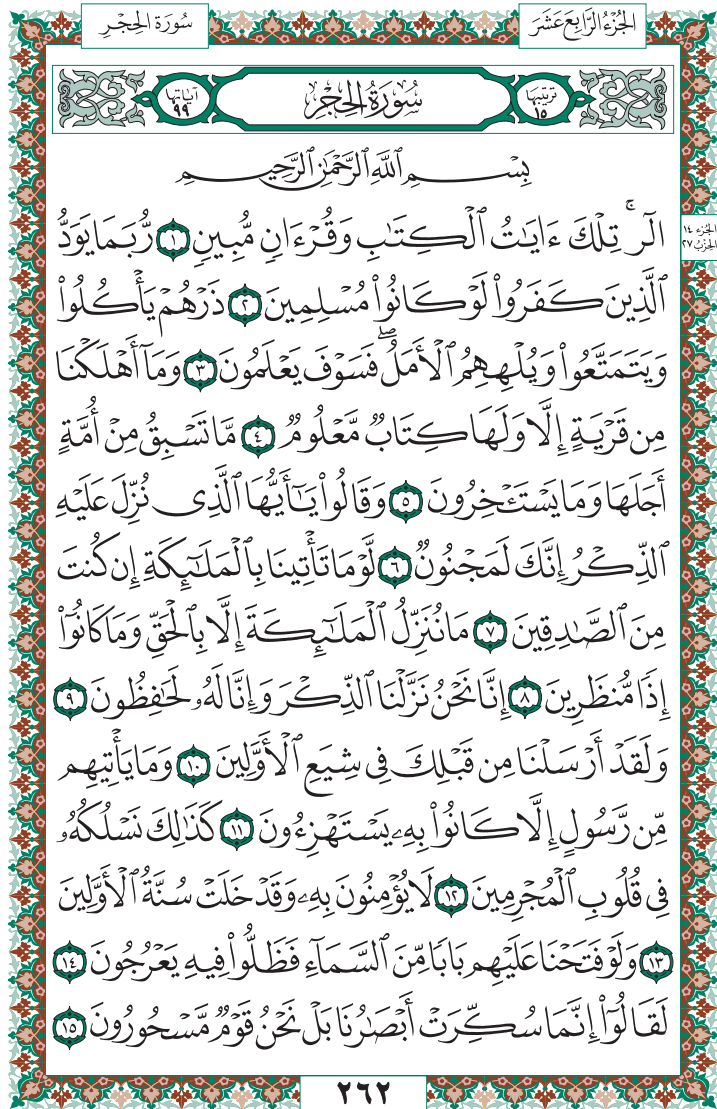 الجُزْءُ الرَّابِعَ عَشَرَ
سُورَةُ الحِجْرِ
تَرتِيبُهَا ١٥
سُورَةُ الحِجْرِ
آيَاتُهَا ٩٩
بِسْمِ ٱللَّهِ ٱلرَّحْمَٰنِ ٱلرَّحِيمِ
الٓرۚ تِلْكَ ءَايَٰتُ ٱلْكِتَٰبِ وَقُرْءَانٍ مُّبِينٍ ١ رُّبَمَا يَوَدُّ
الجزء ١٤
الحزب ٢٧
ٱلَّذِينَ كَفَرُوا۟ لَوْ كَانُوا۟ مُسْلِمِينَ ٢ ذَرْهُمْ يَأْكُلُوا۟
وَيَتَمَتَّعُوا۟ وَيُلْهِهِمُ ٱلْأَمَلُۖ فَسَوْفَ يَعْلَمُونَ ٣ وَمَآ أَهْلَكْنَا
مِن قَرْيَةٍ إِلَّا وَلَهَا كِتَابٌ مَّعْلُومٌ ٤ مَّا تَسْبِقُ مِنْ أُمَّةٍ
أَجَلَهَا وَمَا يَسْتَـْٔخِرُونَ ٥ وَقَالُوا۟ يَٰٓأَيُّهَا ٱلَّذِى نُزِّلَ عَلَيْهِ
ٱلذِّكْرُ إِنَّكَ لَمَجْنُونٌ ٦ لَّوْ مَا تَأْتِينَا بِٱلْمَلَٰٓئِكَةِ إِن كُنتَ
مِنَ ٱلصَّٰدِقِينَ ٧ مَا نُنَزِّلُ ٱلْمَلَٰٓئِكَةَ إِلَّا بِٱلْحَقِّ وَمَا كَانُوٓا۟
إِذًا مُّنظَرِينَ ٨ إِنَّا نَحْنُ نَزَّلْنَا ٱلذِّكْرَ وَإِنَّا لَهُۥ لَحَٰفِظُونَ ٩
وَلَقَدْ أَرْسَلْنَا مِن قَبْلِكَ فِى شِيَعِ ٱلْأَوَّلِينَ ١٠ وَمَا يَأْتِيهِم
مِّن رَّسُولٍ إِلَّا كَانُوا۟ بِهِۦ يَسْتَهْزِءُونَ ١١ كَذَٰلِكَ نَسْلُكُهُۥ
فِى قُلُوبِ ٱلْمُجْرِمِينَ ١٢ لَا يُؤْمِنُونَ بِهِۦ وَقَدْ خَلَتْ سُنَّةُ ٱلْأَوَّلِينَ
١٣ وَلَوْ فَتَحْنَا عَلَيْهِم بَابًا مِّنَ ٱلسَّمَآءِ فَظَلُّوا۟ فِيهِ يَعْرُجُونَ ١٤
لَقَالُوٓا۟ إِنَّمَا سُكِّرَتْ أَبْصَٰرُنَا بَلْ نَحْنُ قَوْمٌ مَّسْحُورُونَ ١٥
٢٦٢